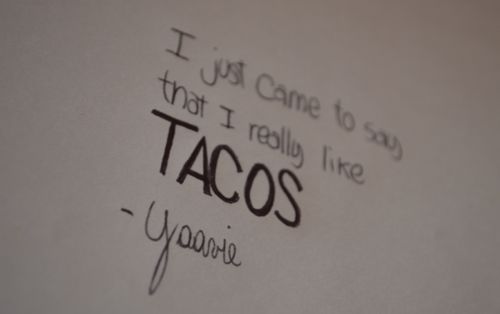 I just came to say
that I really like
TACOS
- Yaavie